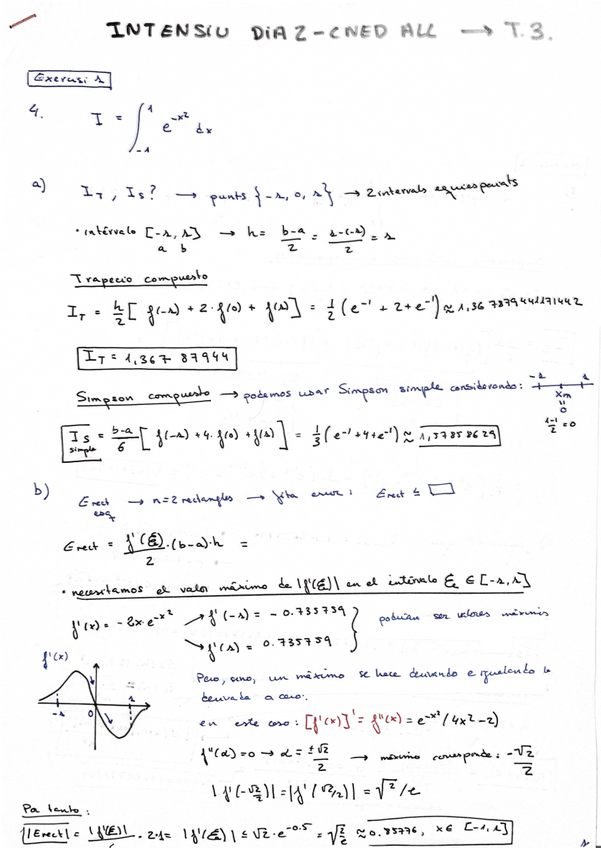 INTENSIU DIA 2 - CNED ALL → T.3.
Exercisi 1
4. I = ∫_{-1}^{1} e^{-x²} dx
a) I_T, I_S? → punts {-1, 0, 1} → 2 intervals equiespaiats
· intérvalo [-1, 1] → h = b-a/2 = 1-(-1)/2 = 1
a b
Trapecio compuesto
I_T = h/2 [f(-1) + 2·f(0) + f(1)] = 1/2 (e^{-1} + 2 + e^{-1}) ≈ 1,367879441171442
I_T = 1,367 87944
Simpson compuesto → podemos usar Simpson simple considerando: -1 1
Xm
"
0
1-1/2 = 0
I_S = b-a/6 [f(-1) + 4·f(0) + f(1)] = 1/3 (e^{-1} + 4 + e^{-1}) ≈ 1,57858629
simple
b) Erect → n=2 rectangles → fita error: Erect ≤ □
esq
Erect = f'(ξ)/2 ·(b-a)·h =
· necesitamos el valor máximo de |f'(ξ)| en el intérvalo ξ ∈ [-1, 1]
f'(x) = -2x·e^{-x²} → f'(-1) = - 0.735759
→ f'(1) = 0.735759
podrían ser valores máximos
f'(x)
-1 0 1
Pero, sino, un máximo se hace derivando e igualando la
derivada a cero:
en este caso: [f'(x)]' = f''(x) = e^{-x²}(4x²-2)
f''(α) = 0 → α = ±√2/2 → máximo corresponde: -√2/2
|f'(-√2/2)| = |f'(√2/2)| = √2/e
Por tanto:
|Erect| = |f'(ξ)| · 2·1 = |f'(ξ)| ≤ √2·e^{-0.5} = √2/e ≈ 0.85776, x ∈ [-1, 1]
1